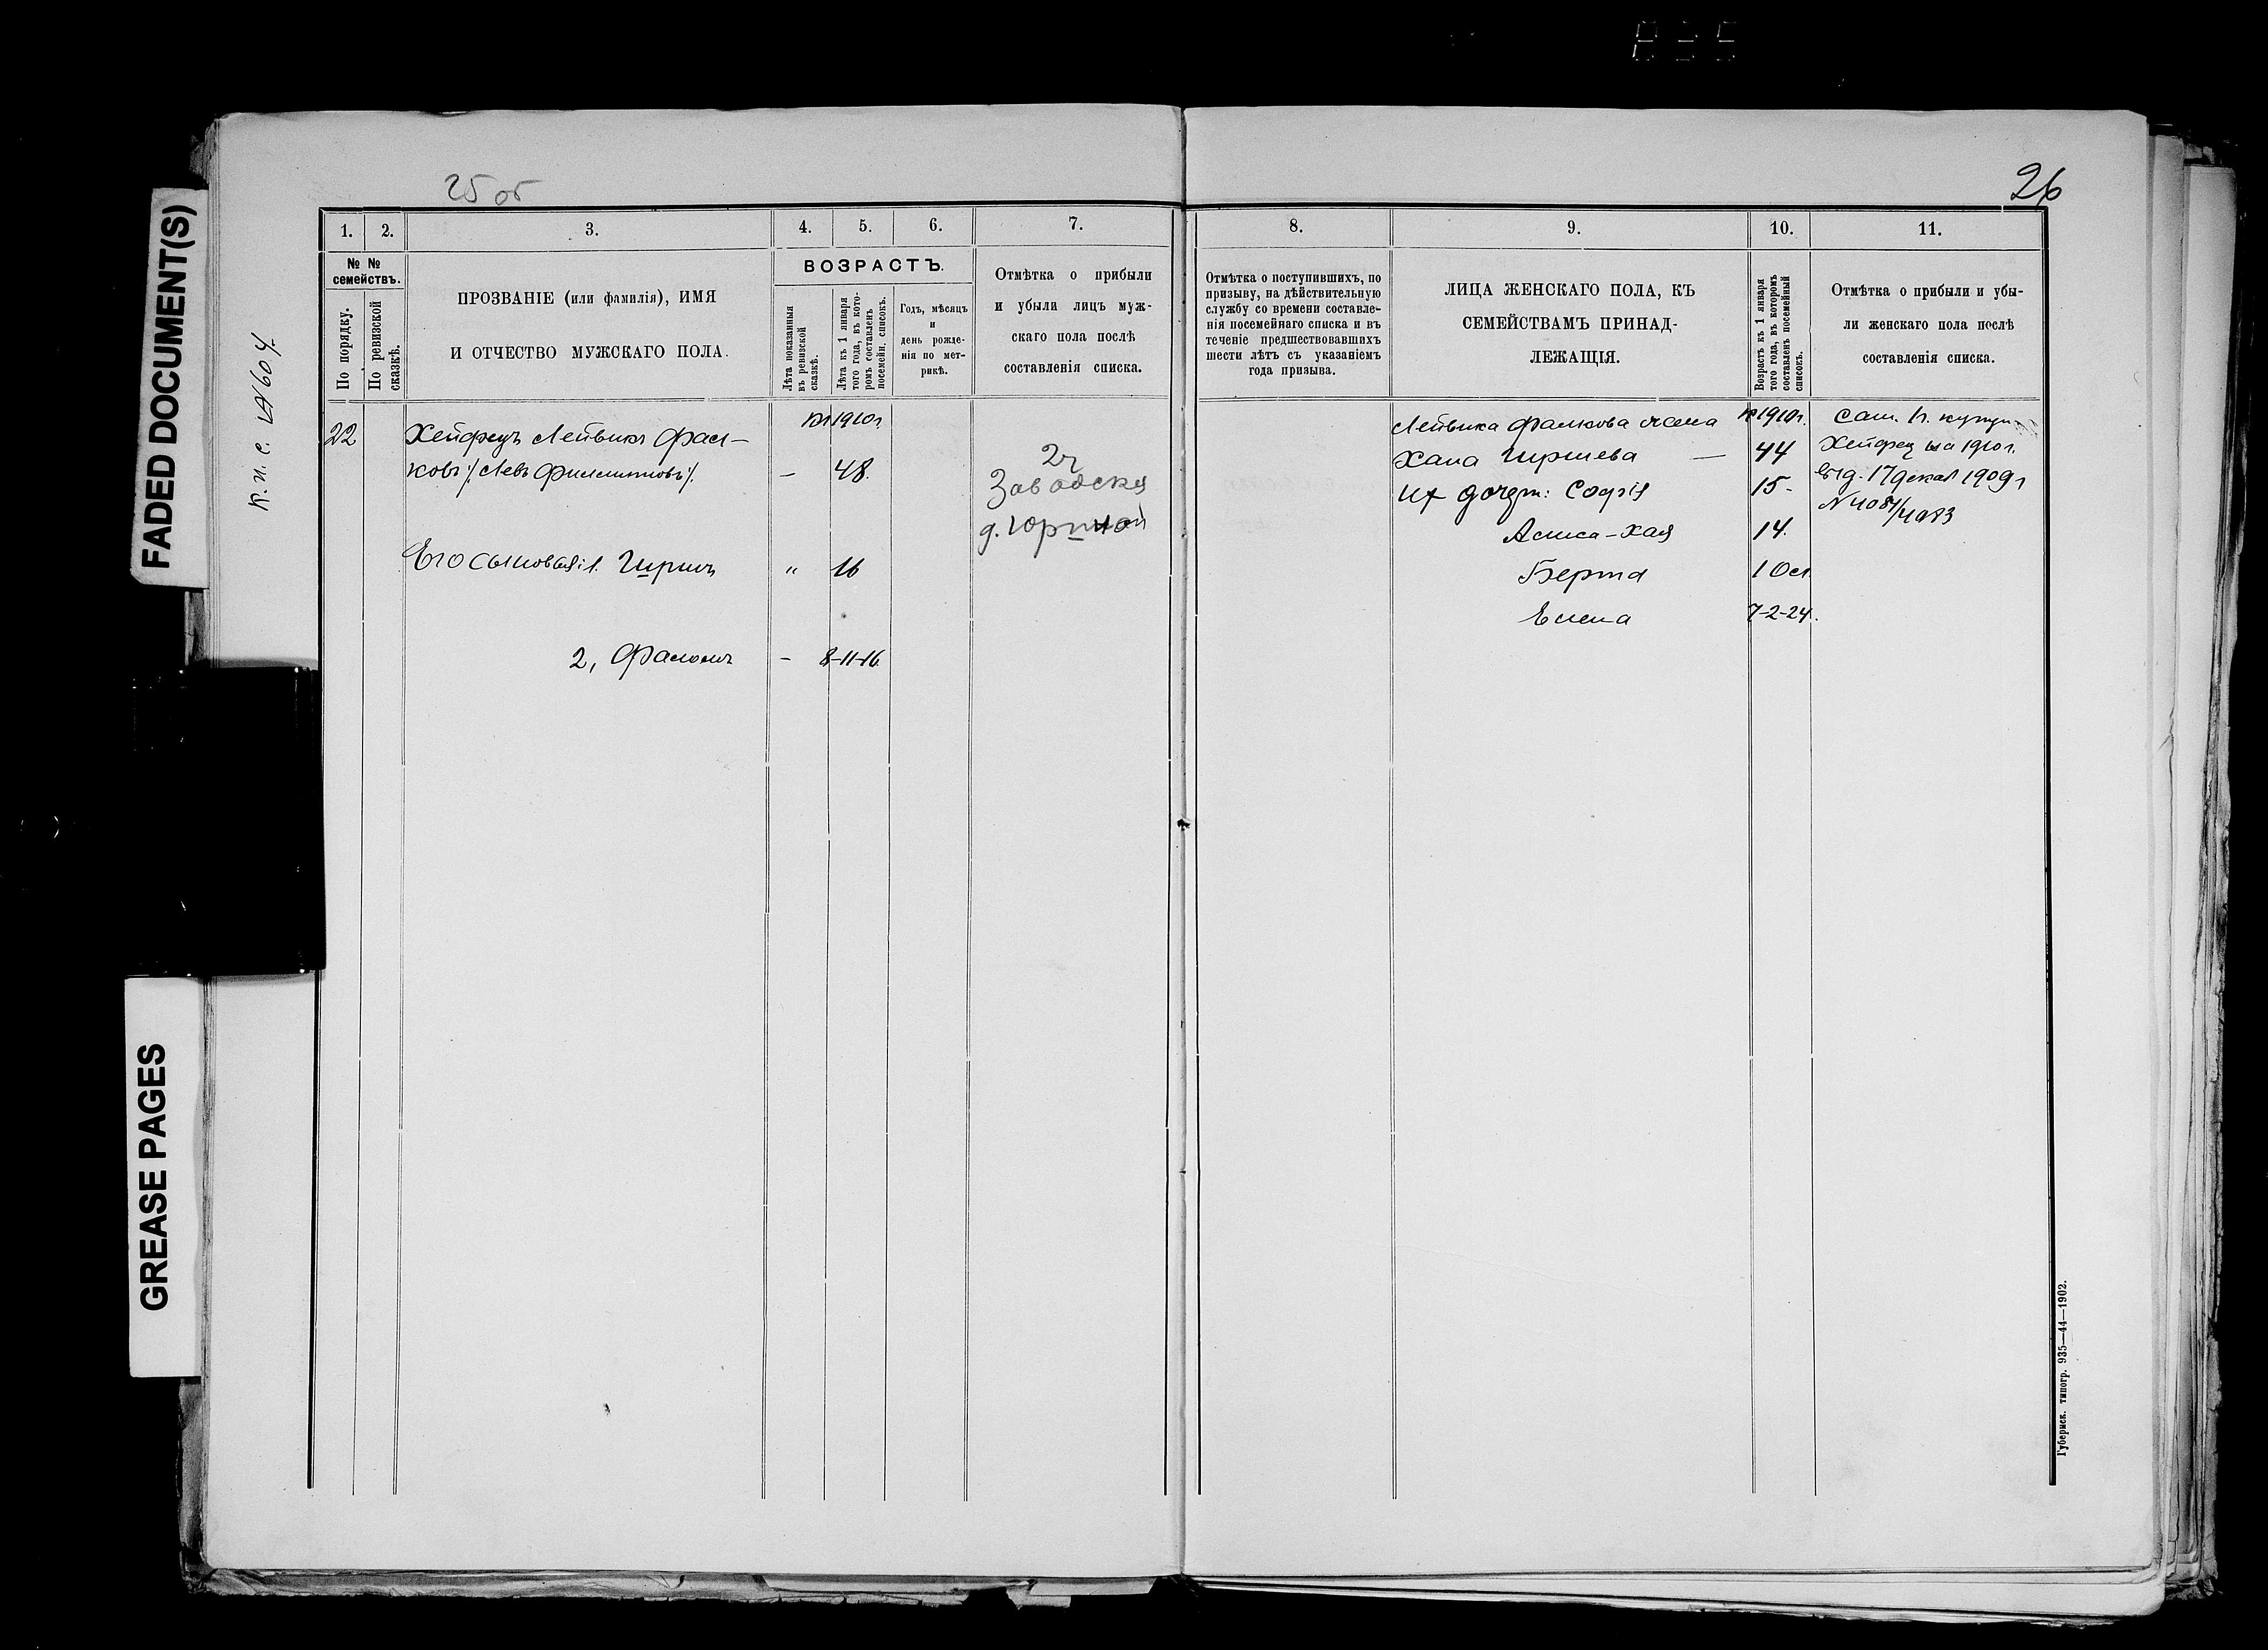 FADED DOCUMENT(S)
GREASE PAGES
25 об
26
1.
2.
3.
4.
5.
6.
7.
8.
9.
10.
11.
№ №
семействъ.
По порядку.
По ревизской
сказкѣ.
ПРОЗВАНІЕ (или фамилія), ИМЯ
И ОТЧЕСТВО МУЖСКАГО ПОЛА.
ВОЗРАСТЪ.
Лѣта показанныя
въ ревизской
сказкѣ.
Лѣта къ 1 января
того года, въ кото-
ромъ составленъ
посемейн. списокъ.
Годъ, мѣсяцъ
и
день рожде-
нія по мет-
рикѣ.
Отмѣтка о прибыли
и убыли лицъ муж-
скаго пола послѣ
составленія списка.
Отмѣтка о поступившихъ, по
призыву, на дѣйствительную
службу со времени составле-
нія посемейнаго списка и въ
теченіе предшествовавшихъ
шести лѣтъ съ указаніемъ
года призыва.
ЛИЦА ЖЕНСКАГО ПОЛА, КЪ
СЕМЕЙСТВАМЪ ПРИНАД-
ЛЕЖАЩІЯ.
Возрастъ къ 1 января
того года, въ которомъ
составленъ посемейный
списокъ.
Отмѣтка о прибыли и убы-
ли женскаго пола послѣ
составленія списка.
22
Хейфецъ Лейвикъ Фал-
ковъ /: Левъ Филипповъ :/
1910г.
— 48.
2ч
Заводска
д.
Его сыновья: 1. Гиршъ
" 16
2, Фалкъ
— 8-11-16
Лейвика Фалкова жена
1910г.
Хана Гиршева — 44
Их дочери: Софія 15-
Алиса-Хая 14.
Берта 10
Елена 7-2-24.
Хейфец на 1910г.
выд. 17 декаб 1909г
Губернск. типогр. 935—44—1902.